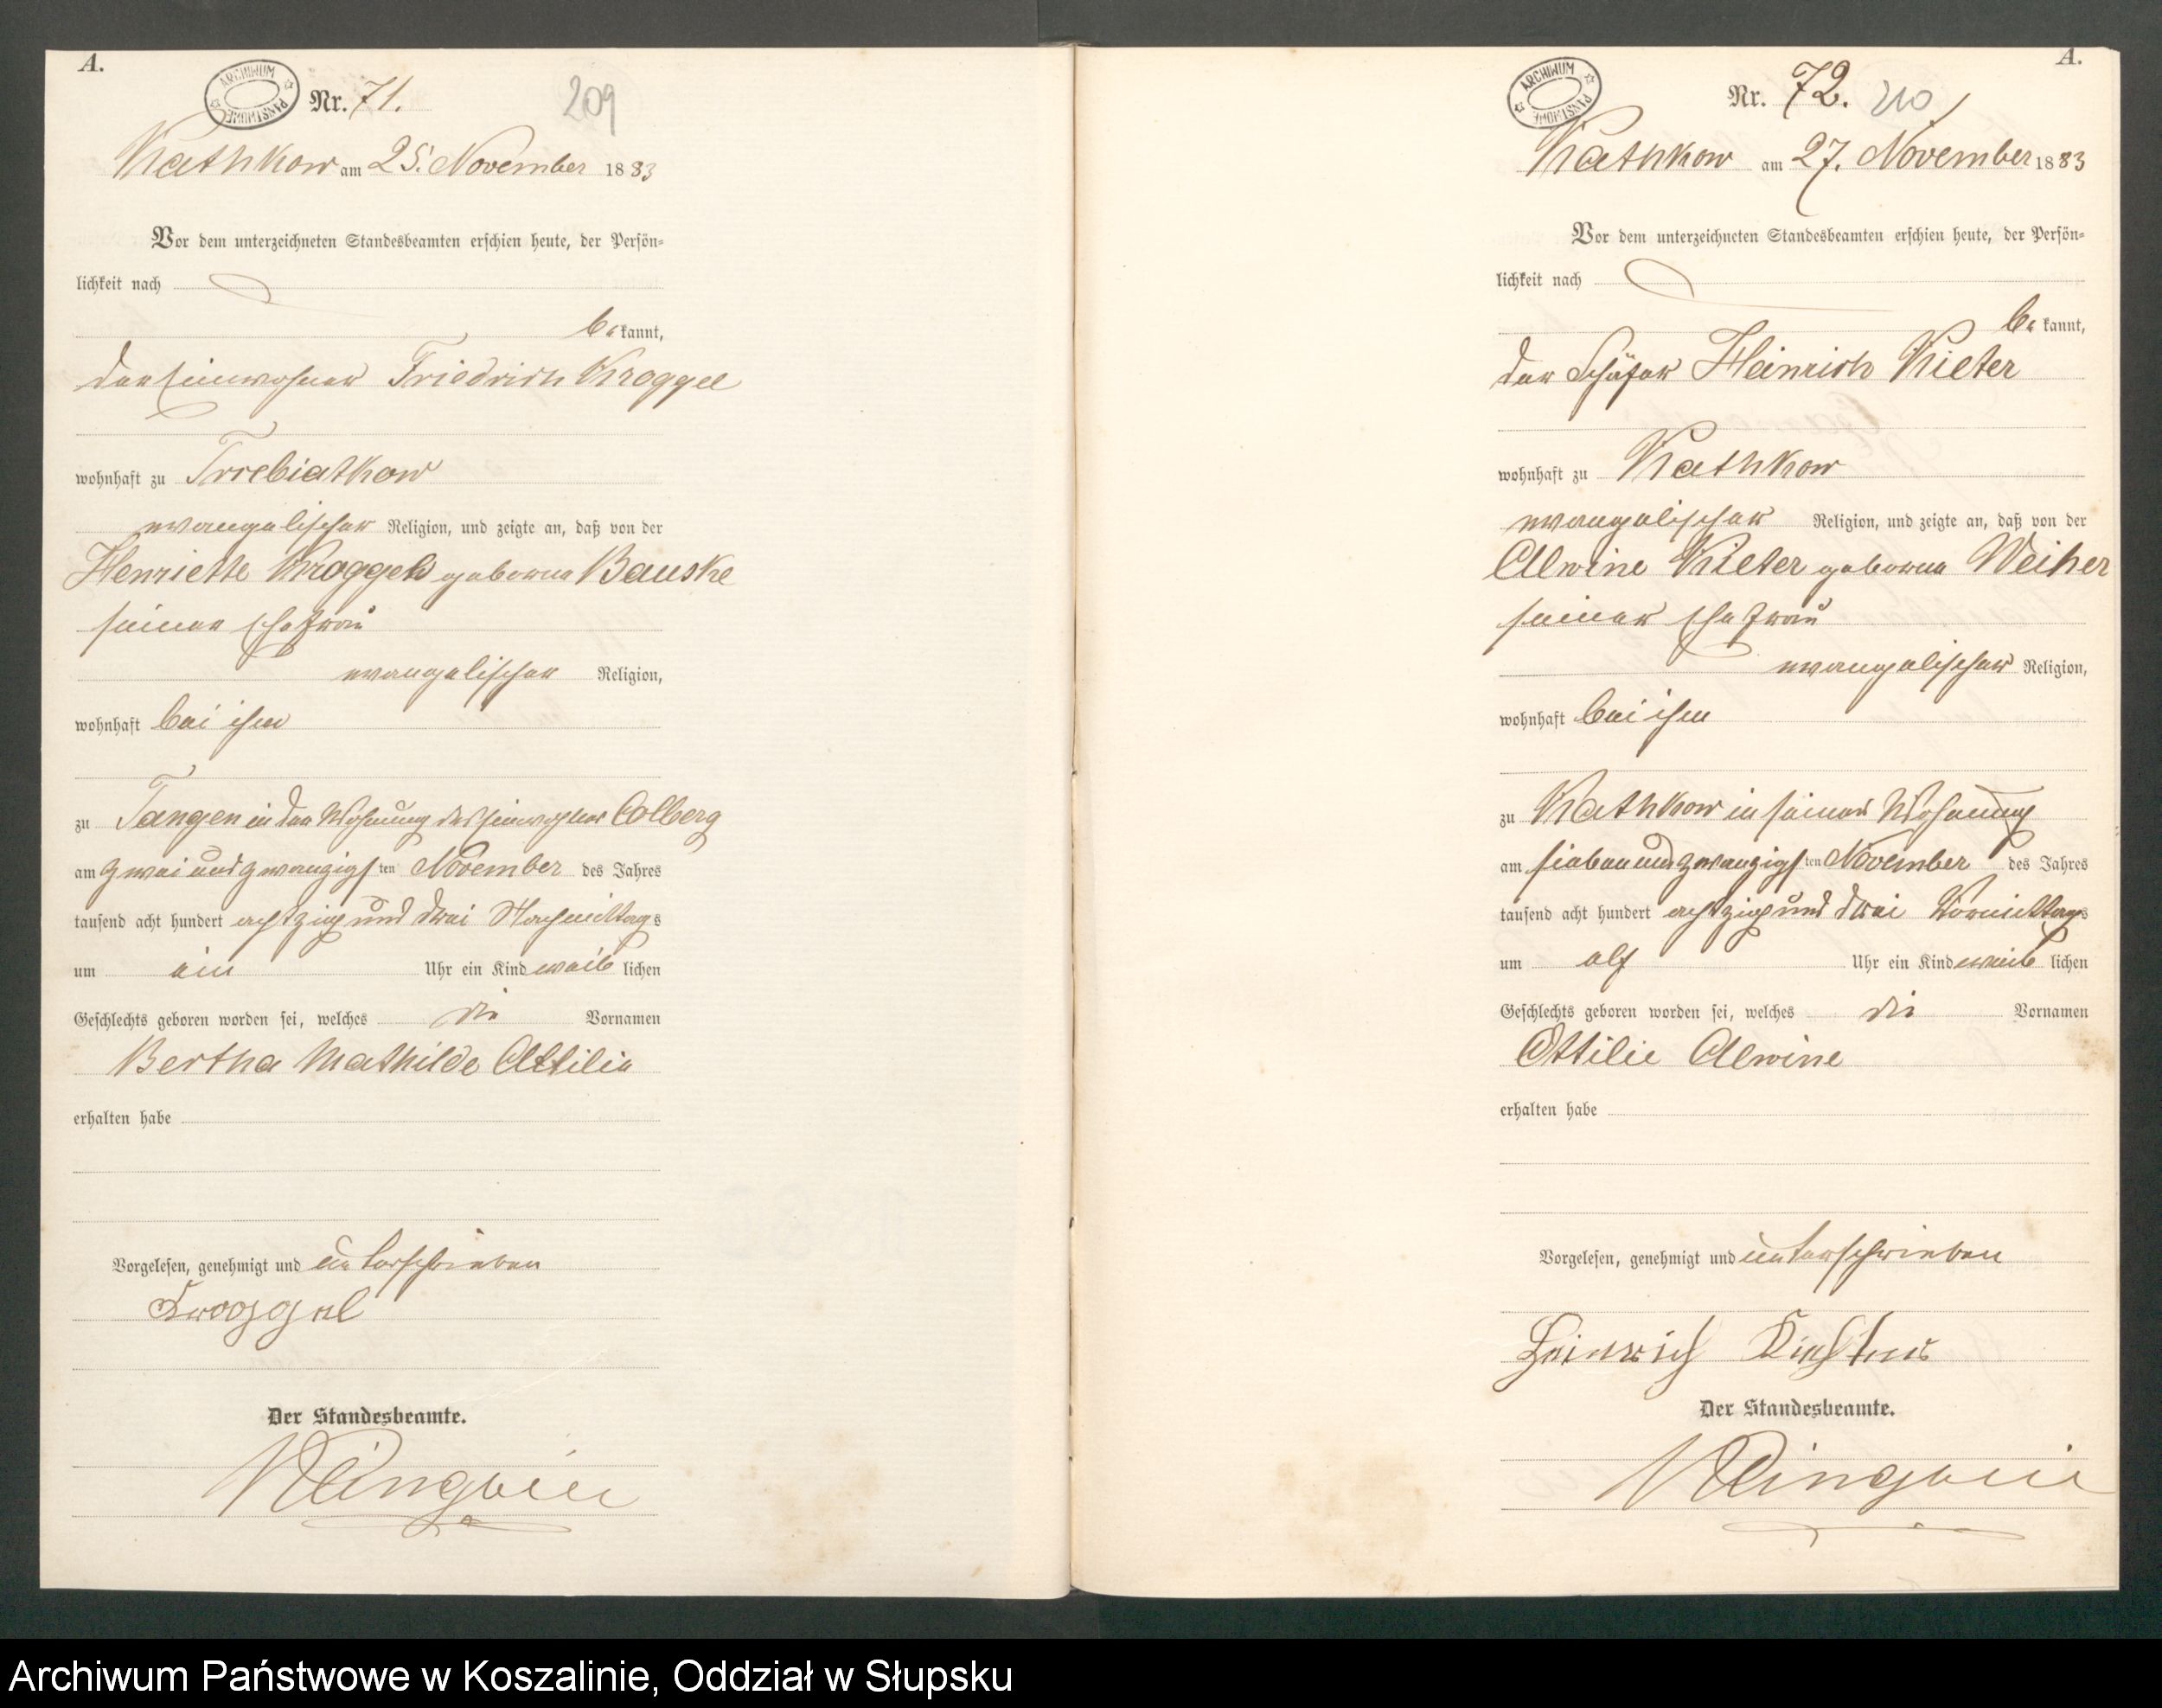 A.
ARCHIWUM PAŃSTWOWE
Nr. 71.
209
Kathkow am 25. November 1883
Vor dem unterzeichneten Standesbeamten erschien heute, der Persön-
lichkeit nach
bekannt,
der Einwohner Friedrich Kroggel
wohnhaft zu Trrebiatkow
evangelischer Religion, und zeigte an, daß von der
Henriette Kroggel geborne Bauske
seiner Ehefrau
evangelischer Religion,
wohnhaft bei ihm
zu Tangen in der Wohnung des Einwohner Colberg
am zwei und zwanzigsten November des Jahres
tausend acht hundert achtzig und drei Nachmittags
um ein Uhr ein Kind weiblichen
Geschlechts geboren worden sei, welches die Vornamen
Bertha Mathilde Ottilie
erhalten habe
Vorgelesen, genehmigt und unterschrieben
Kroggel
Der Standesbeamte.
A.
ARCHIWUM PAŃSTWOWE
Nr. 72. 210
Kathkow am 27. November 1883
Vor dem unterzeichneten Standesbeamten erschien heute, der Persön-
lichkeit nach
bekannt,
der Schäfer Heinrich Kieter
wohnhaft zu Kathkow
evangelischer Religion, und zeigte an, daß von der
Alwine Kieter geborne Weiher
seiner Ehefrau
evangelischer Religion,
wohnhaft bei ihm
zu Kathkow in seiner Wohnung
am sieben und zwanzigsten November des Jahres
tausend acht hundert achtzig und drei Vormittags
um elf Uhr ein Kind weiblichen
Geschlechts geboren worden sei, welches die Vornamen
Ottilie Alwine
erhalten habe
Vorgelesen, genehmigt und unterschrieben
Heinrich
Der Standesbeamte.
Archiwum Państwowe w Koszalinie, Oddział w Słupsku